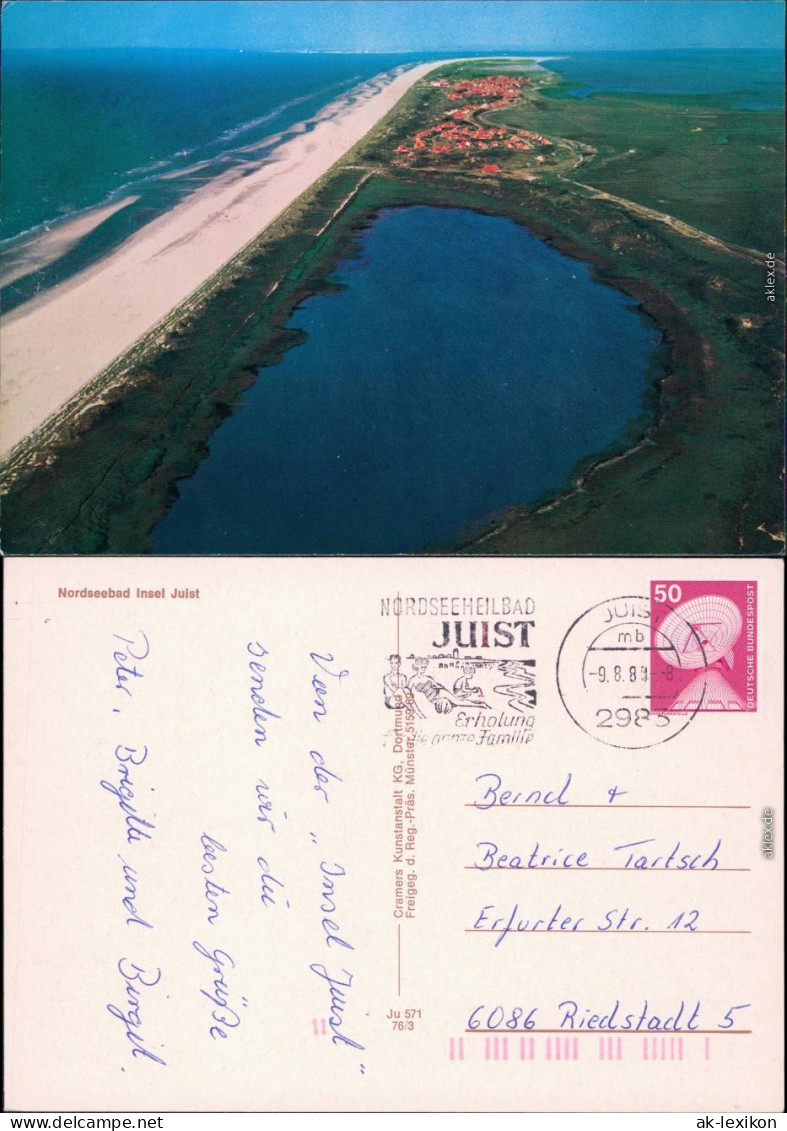 aklex.de
Nordseebad Insel Juist
NORDSEEHEILBAD
JUIST
Erholung
die ganze Familie
JUIST
mb
-9.8.8
2983
50
DEUTSCHE BUNDESPOST
Von der „Insel Juist"
senden wir die
besten Grüße
Peter, Brigitte und Birgit.
Cramers Kunstanstalt KG, Dortmund
Freigeg. d. Reg.-Präs. Münster
Ju 571
76/3
Bernd +
Beatrice Tartsch
Erfurter Str. 12
6086 Riedstadt 5
aklex.de
www.oldthing.de
ak-lexikon